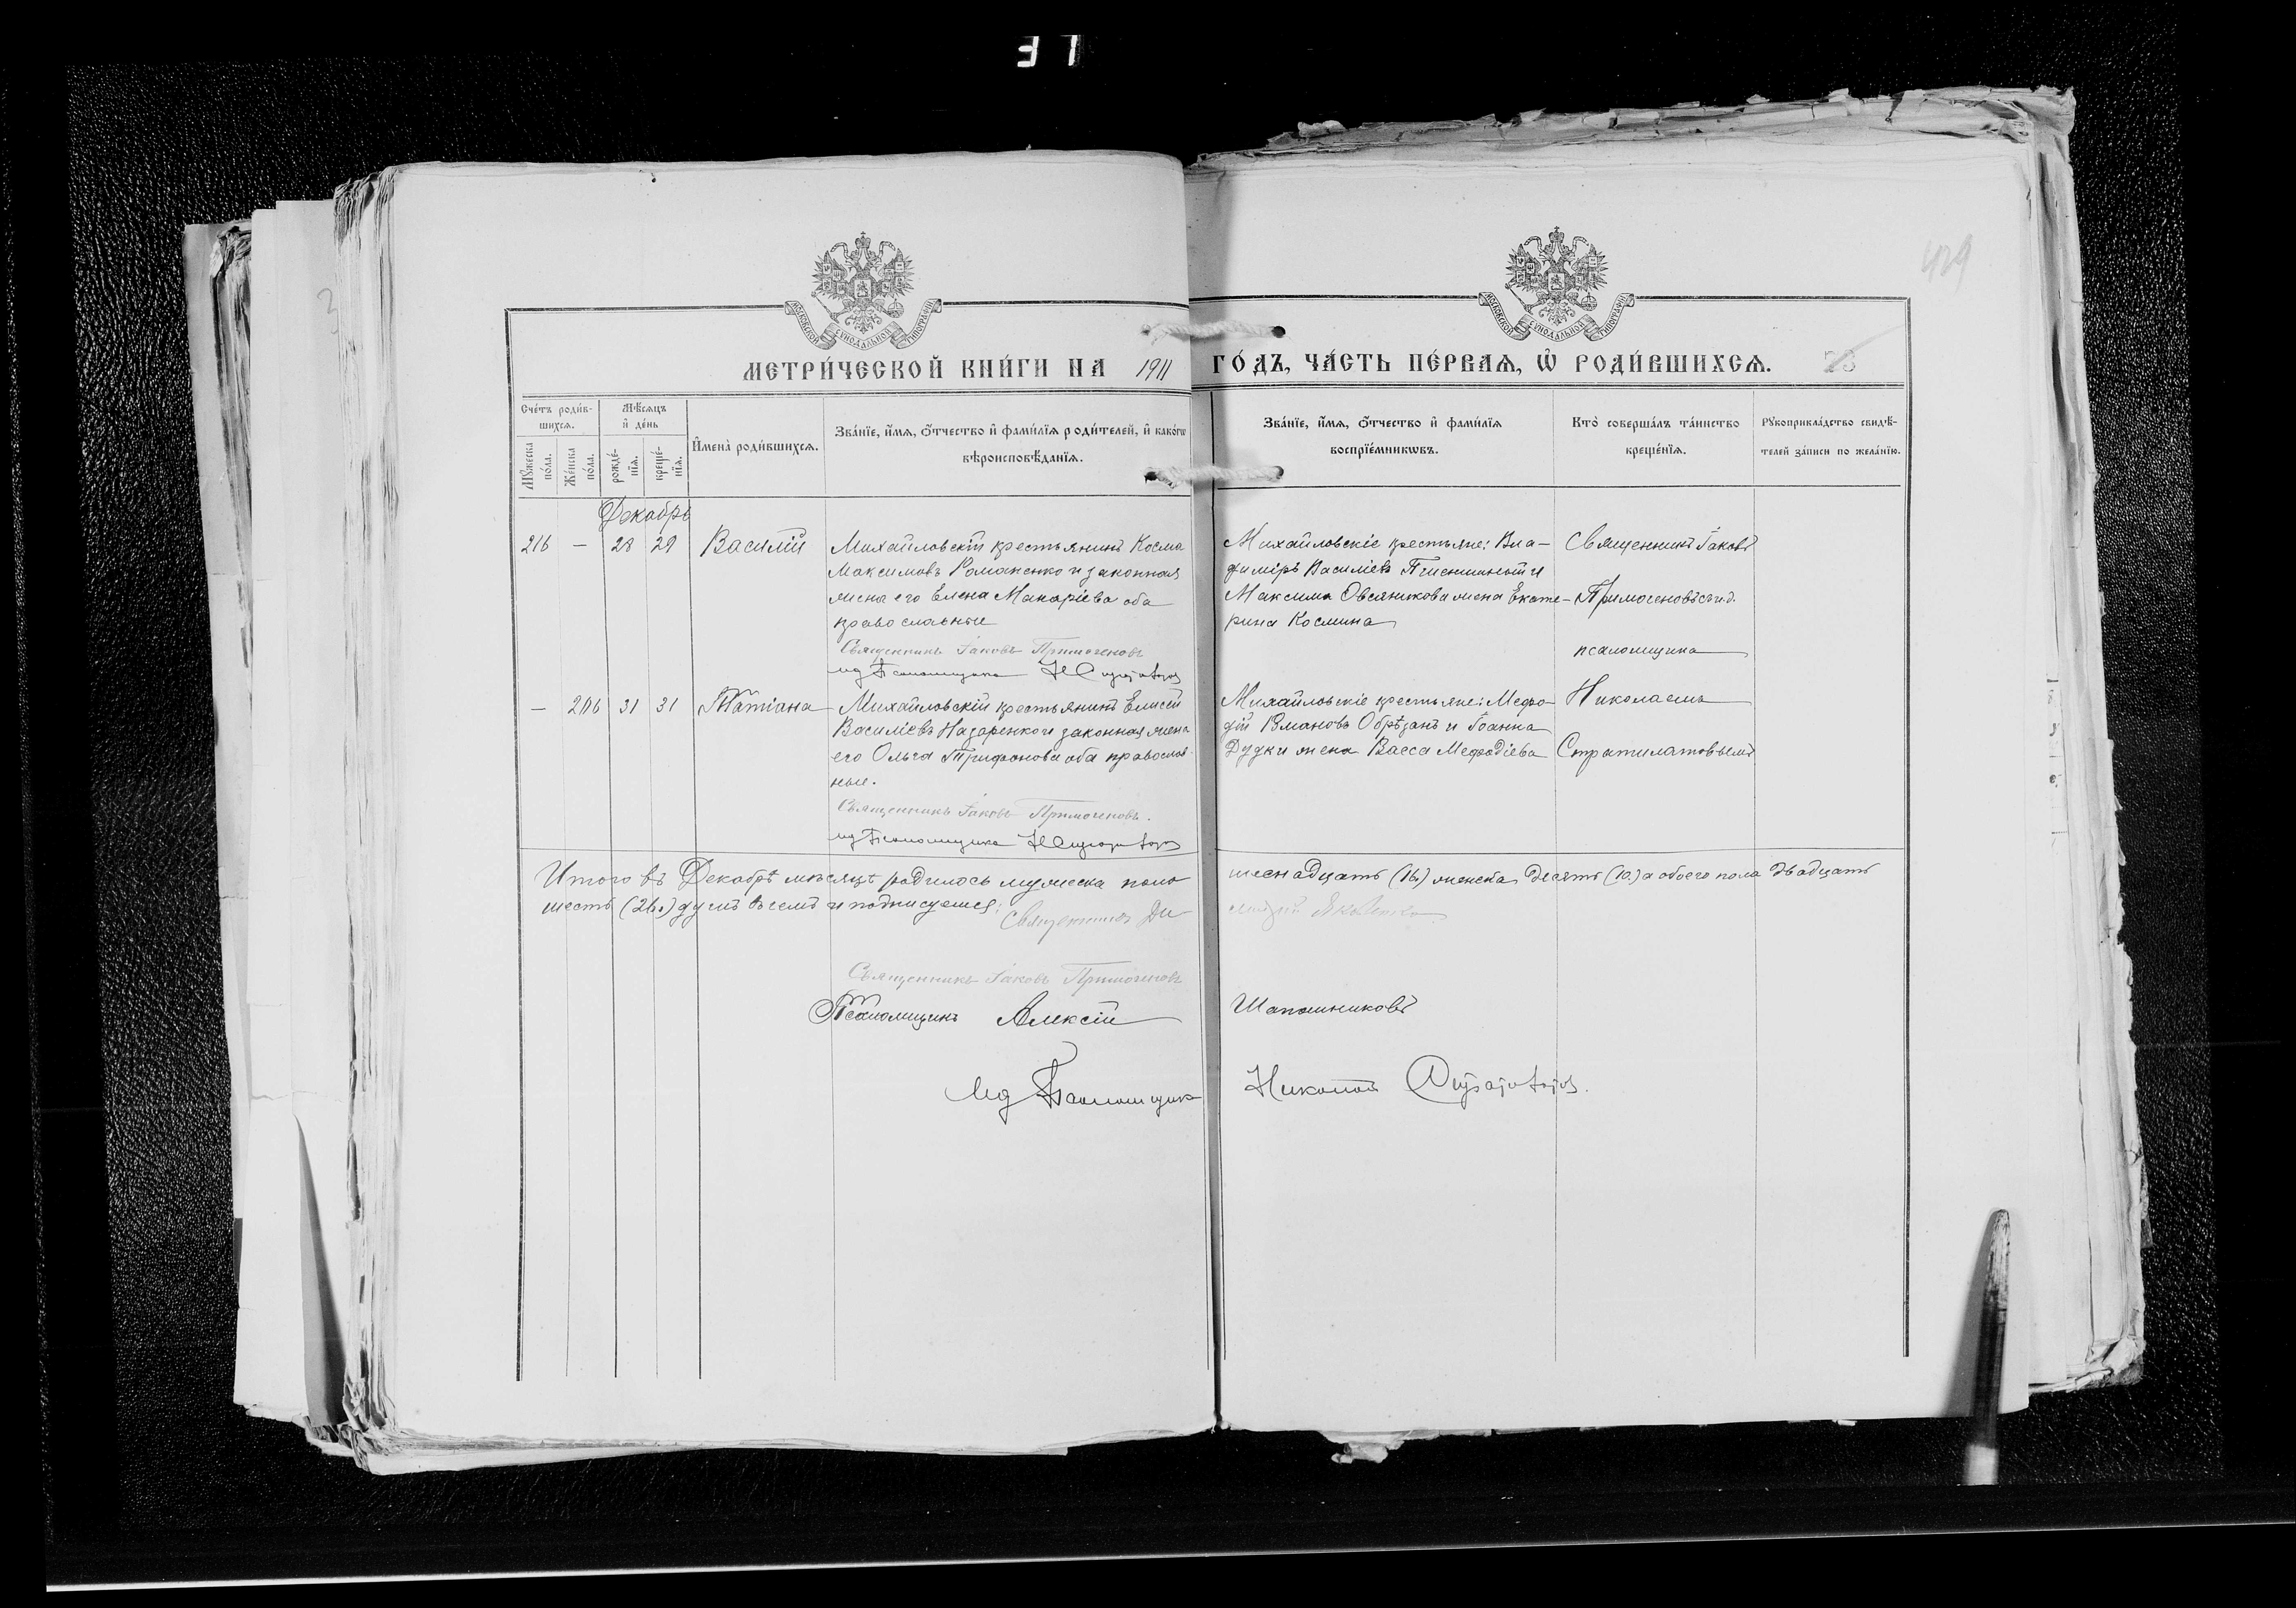 31
429
МОСКОВСКОЙ СУНОДАЛЬНОЙ ТИПОГРАФІИ
МОСКОВСКОЙ СУНОДАЛЬНОЙ ТИПОГРАФІИ
МЕТРИ́ЧЕСКОЙ КНИ́ГИ НА 1911 ГО́ДЪ, ЧА́СТЬ ПЕ́РВАЯ, Ѡ҆ РОДИ́ВШИХСЯ. 73
Сче́тъ роди́в-
шихся.
Мѣ́сяцъ
и҆ де́нь
Мꙋ́жеска
по́ла.
Же́нска
по́ла.
рожде́-
нїя.
креще́-
нїя.
И҆мена̀ роди́вшихся.
Зва́нїе, и҆́мя, ѻ҆́тчество и҆ фами́лїя роди́телей, и҆ како́гѡ
вѣроисповѣ́данїя.
Зва́нїе, и҆́мя, ѻ҆́тчество и҆ фами́лїя
воспрїе́мникѡвъ.
Кто̀ соверша́лъ та́инство
креще́нїя.
Рꙋкоприкла́дство свидѣ́-
телей за́писи по жела́нїю.
Декабрь
216 — 28 29 Василій
Михайловскій крестьянинъ Косма
Максимовъ Романенко и законная
жена его Елена Макаріева оба
православные
Священникъ Іаковъ Примогеновъ
и д Псаломщика Н
Михайловскіе крестьяне: Вла-
димірь Василіевъ Пшеничный и
Максима Овсяникова жена Екате-
рина Космина
Священникъ Іаковъ
Примогеновъ съ и.д.
псаломщика
— 206 31 31 Татіана
Михайловскій крестьянинъ Елисей
Василіевъ Назаренко и законная жена
его Ольга Трифонова оба православ-
ные.
Священникъ Іаковъ Примогеновъ.
и д Псаломщика Н
Михайловскіе крестьяне: Мефо-
дій Романовъ Обрѣзанъ и Іоанна
Дудки жена Васса Мефодіева
Николаемъ
Стратилатовымъ
Итого въ Декабрѣ мѣсяцѣ родилось мужеска пола шеснадцать (16.) женска десять (10.) а обоего пола двадцать
шесть (26.) душъ въ чемъ и подписуемся:
Священникъ Ди-
Священникъ Іаковъ Примогеновъ
Псаломщикъ Алексій Шапошниковъ
И д Псаломщика Николай